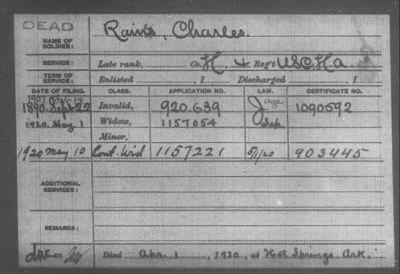 DEAD
NAME OF SOLDIER: Rains, Charles.
SERVICE: Late rank, Co. H, 4 Reg't U.S.C.H.A.
TERM OF SERVICE: Enlisted , 1 Discharged , 1
DATE OF FILING. CLASS. APPLICATION NO. LAW. CERTIFICATE NO.
1890. Sept 22 Invalid, 920.639 1090592
1920. May. 1 Widow, 1157054
Minor,
1920 May 10 Cont. Wid 1157221 5/1/20 903445
ADDITIONAL SERVICES:
REMARKS:
Died Apr. 1, 1920, at Hot Springs, Ark.